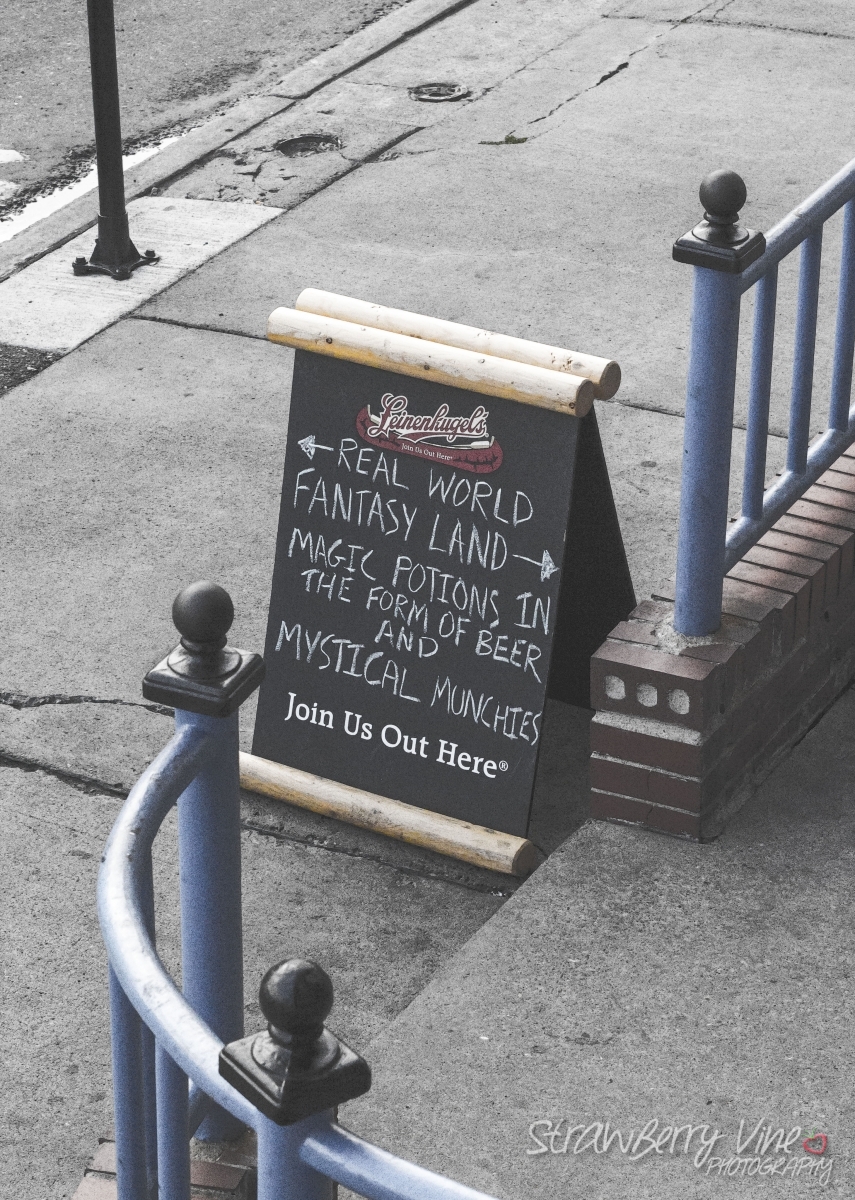 Leinenkugel's
Join Us Out Here®
REAL WORLD
FANTASY LAND
MAGIC POTIONS IN
THE FORM OF BEER
AND
MYSTICAL MUNCHIES
Join Us Out Here®
Strawberry Vine
PHOTOGRAPHY